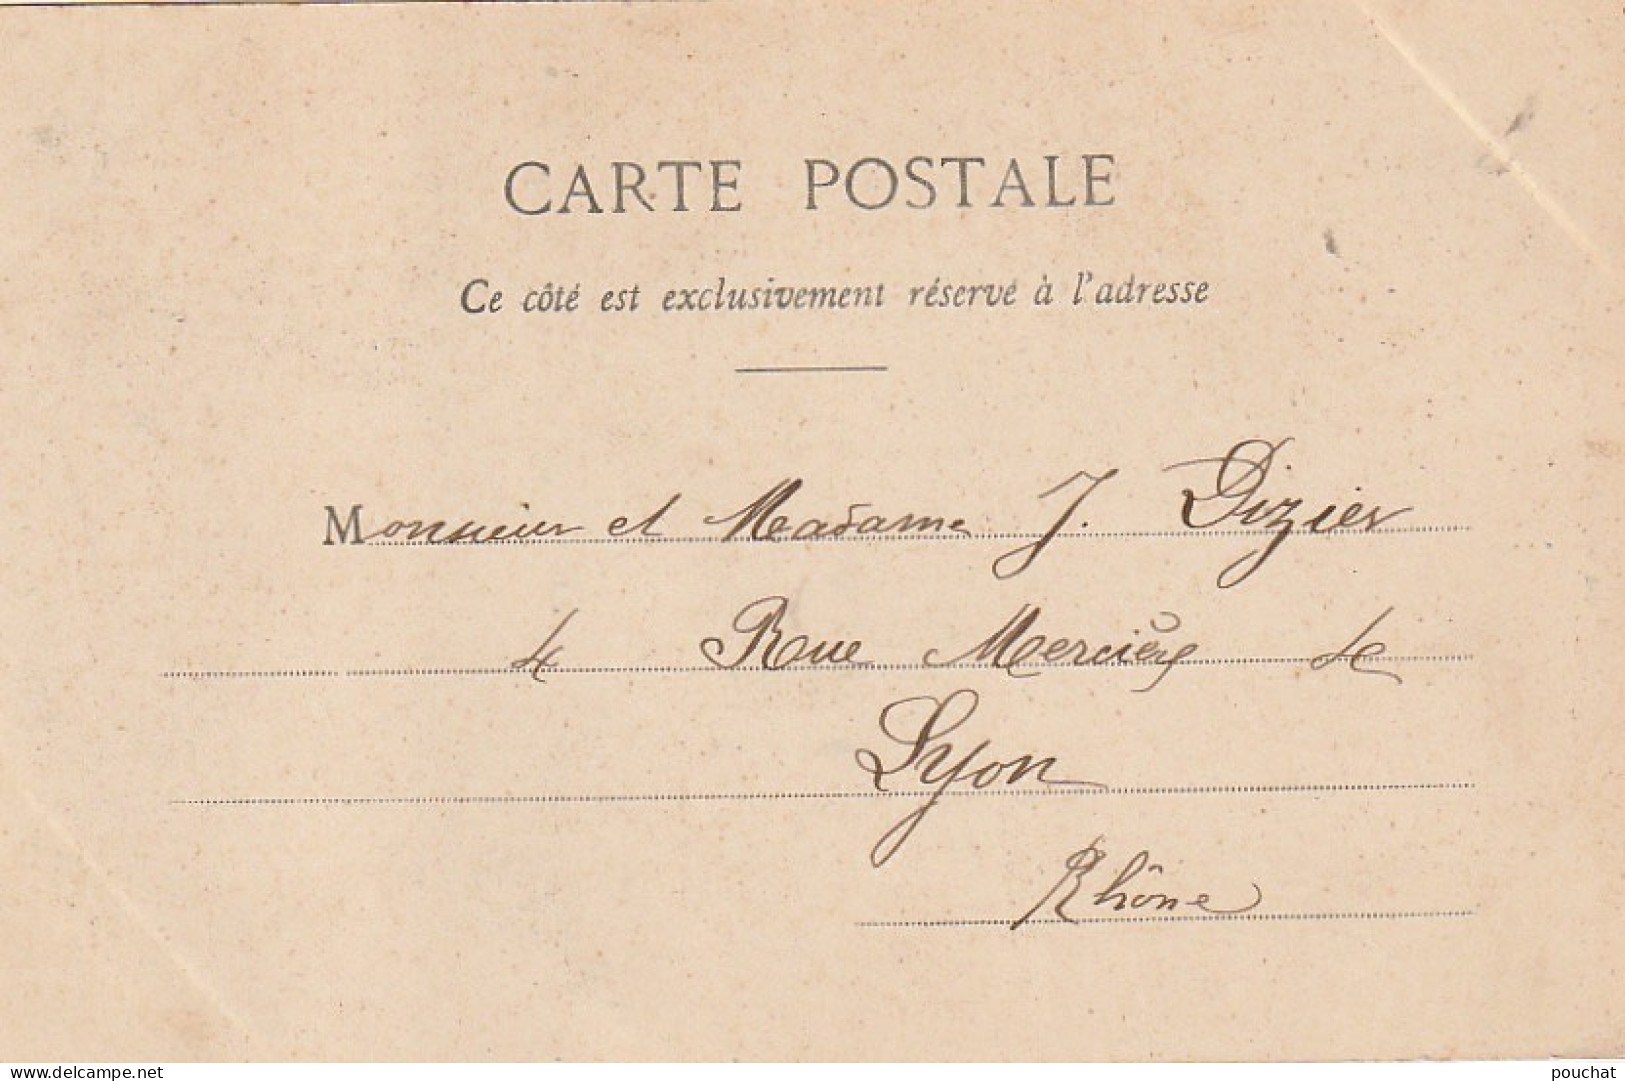 CARTE POSTALE
Ce côté est exclusivement réservé à l'adresse
Monsieur et Madame J. Dizier
Rue Mercière
Lyon
Rhône
delcampe.net
pouchat